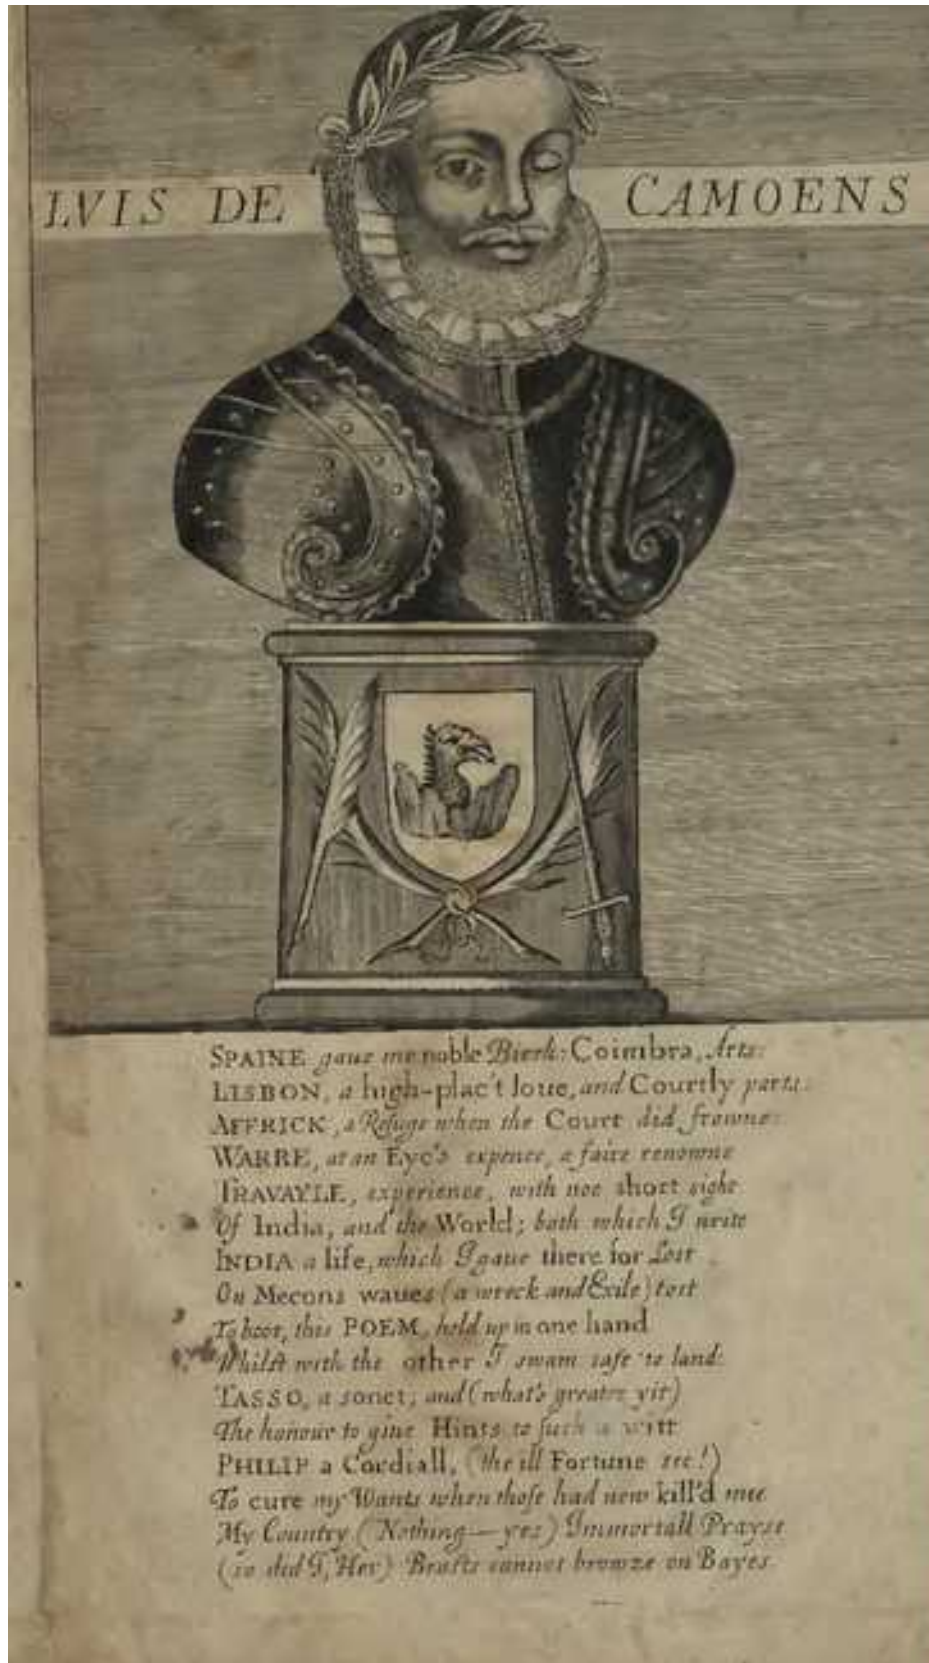 LVIS DE CAMOENS
SPAINE gaue me noble Birth: Coimbra, Arts:
LISBON, a high-plac't loue, and Courtly parts:
AFFRICK, a Refuge when the Court did frowne:
WARRE, at an Eye's expence, a faire renowne
TRAVAYLE, experience, with noe short sight
Of India, and the World; both which I write
INDIA a life, which I gaue there for Lost
On Mecons waues (a wreck and Exile) tost
To boot, this POEM, held up in one hand
Whilst with the other I swam safe to land:
TASSO, a sonet; and (what's greater yit)
The honour to giue Hints to such a witt
PHILIP a Cordiall, (the ill Fortune see!)
To cure my Wants when those had new kill'd mee
My Country (Nothing—yes) Immortall Prayse
(so did I, Her) Beasts cannot browze on Bayes.